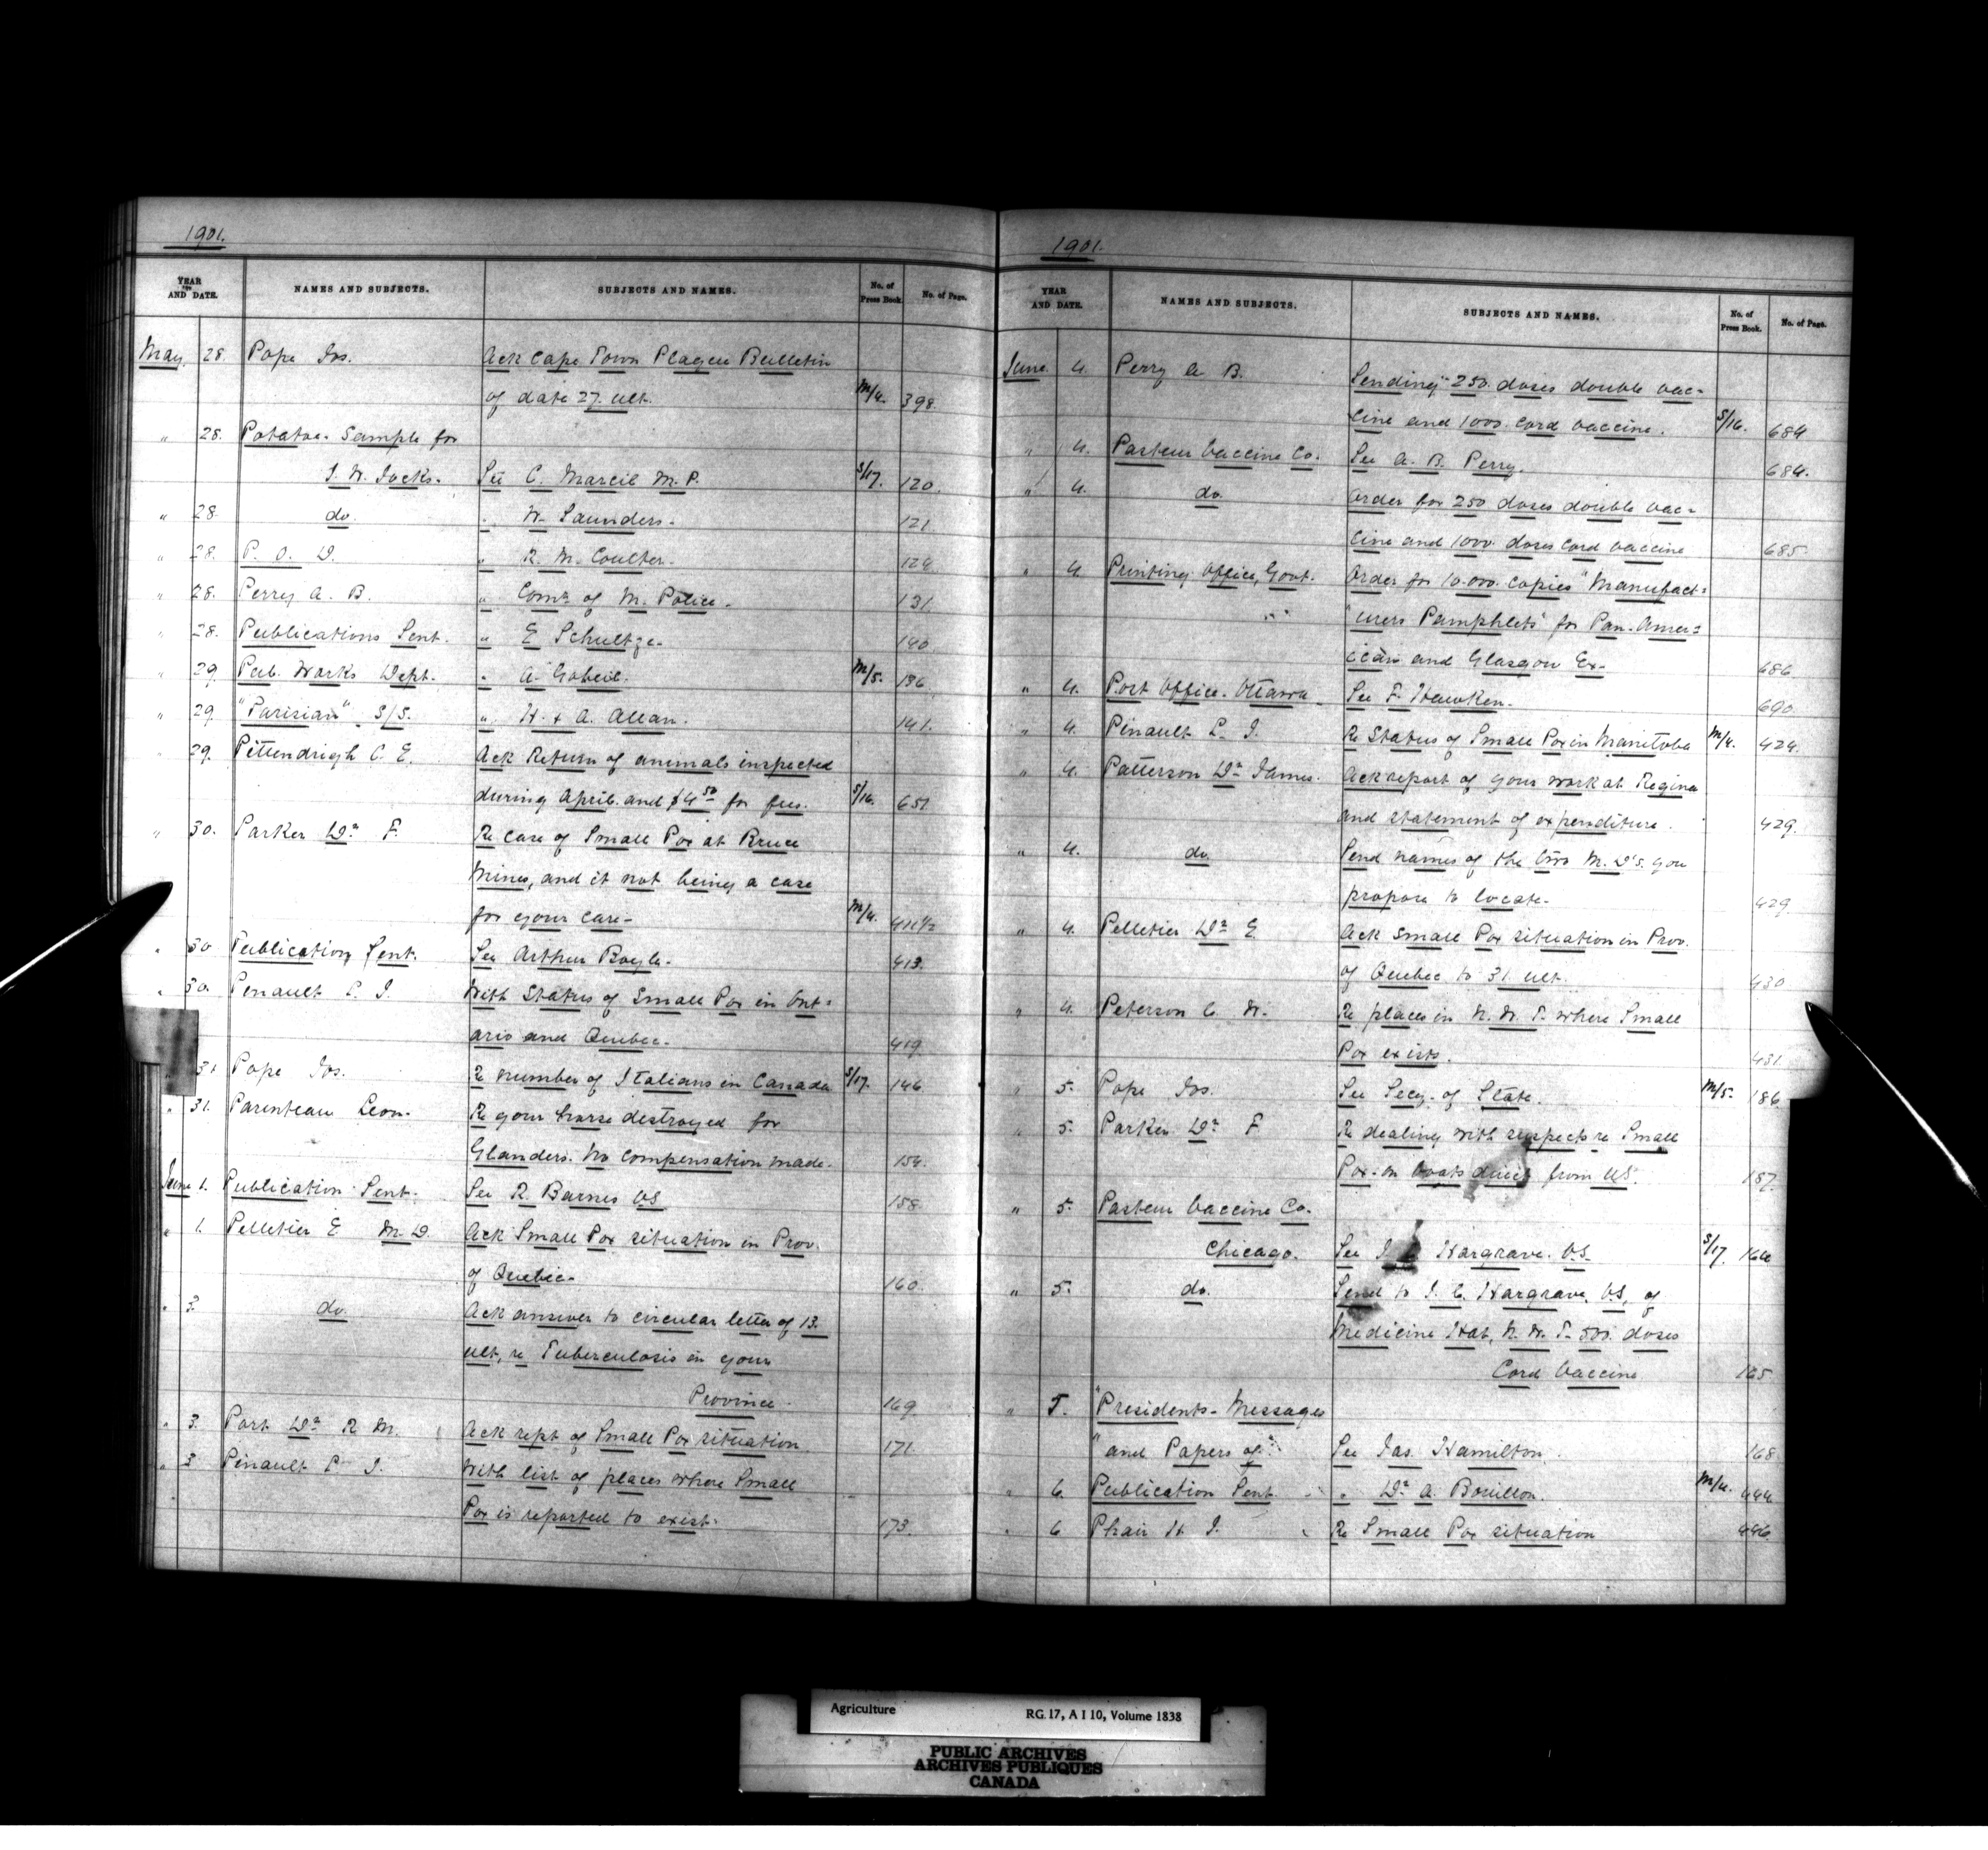 1901.
YEAR AND DATE. NAMES AND SUBJECTS. SUBJECTS AND NAMES. No. of Press Book. No. of Page.
May 28. Pope Jos. Ack Cape Town Plague Bulletin
of date 27. ult. M/4. 398.
" 28. Potatoe- Sample for
J. W. Jacks. See C. Marcil M.P. S/17. 120.
" 28. do. " W. Saunders. 121.
" 28. P. O. D. " R. M. Coulter. 124
" 28. Perry A. B. " Comr. of M. Police. 131.
" 28. Publications Sent. " E Schultze. 140
" 29. Pub. Works Dept. " A. Gobeil. M/5. 136
" 29. "Parisian" S/S. " H. & A. Allan. 141.
" 29. Pittendrigh C. E. Ack Return of animals inspected
during April. and $4.50 for fees. S/16. 651
" 30. Parker Dr. F. Re case of Small Pox at Bruce
Mines, and it not being a case
for your care- M/4. 411 1/2
" 30 Publication Sent. See Arthur Boyle. 413.
" 30. Penault L. J. With Status of Small Pox in Ont=
ario and Quebec. 419
31 Pope Jos. Re number of Italians in Canada S/17. 146
" 31. Parenteau Leon. Re your horse destroyed for
Glanders. No compensation made. 154.
June 1. Publication Sent. See R. Barnes VS 158.
" 1. Pelletier E M.D. Ack Small Pox situation in Prov.
of Quebec- 160.
" 3. do. Ack answer to circular letter of 13.
ult, re Tuberculosis in your
Province. 169.
" 3. Port Dr. R M. Ack rept of Small Pox situation 171.
" 3 Pinault L J. With list of places where Small
Pox is reported to exist. 173.
1901.
YEAR AND DATE. NAMES AND SUBJECTS. SUBJECTS AND NAMES. No. of Press Book. No. of Page.
June 4. Perry A B. Sending 250. doses double vac-
cine and 1000. cord vaccine. S/16. 684
" 4. Pasteur Vaccine Co. See A. B. Perry. 684.
" 4. do. Order for 250 doses double vac=
cine and 1000. doses cord vaccine 685.
" 4. Printing Office, Govt. Order for 10.000. copies "Manufact=
"urers Pamphlets" for Pan-Amer=
ican and Glasgow Ex- 686.
" 4. Post Office. Ottawa See F. Hawken. 690.
" 4. Pinault L. J. Re Status of Small Pox in Manitoba M/4. 424.
" 4. Patterson Dr. James. Ack report of your work at Regina
and statement of expenditure. 429.
" 4. do. Send names of the two M.D's. you
propose to locate. 429.
" 4. Pelletier Dr. E Ack Small Pox situation in Prov.
of Quebec to 31. ult. 430
" 4. Peterson C. W. Re places in N. W. T. where Small
Pox exists. 431.
" 5. Pope Jos. See Secy. of State. M/5. 186
" 5. Parker Dr. F Re dealing with suspects re Small
Pox-on boats direct from US. 187.
" 5. Pasteur Vaccine Co.
Chicago. See J. Hargrave. V.S. S/17. 164
" 5. do. Send to J. C. Hargrave. V.S, of
Medicine Hat, N. W. T. 500. doses
Cord Vaccine 165
" 5. "Presidents- Messages
"and Papers of" See Jas. Hamilton. 168
" 6. Publication Sent " Dr. A. Bouillon. M/4. 444
" 6 Phair H J. Re Small Pox situation 446.
Agriculture RG 17, A I 10, Volume 1838
PUBLIC ARCHIVES
ARCHIVES PUBLIQUES
CANADA